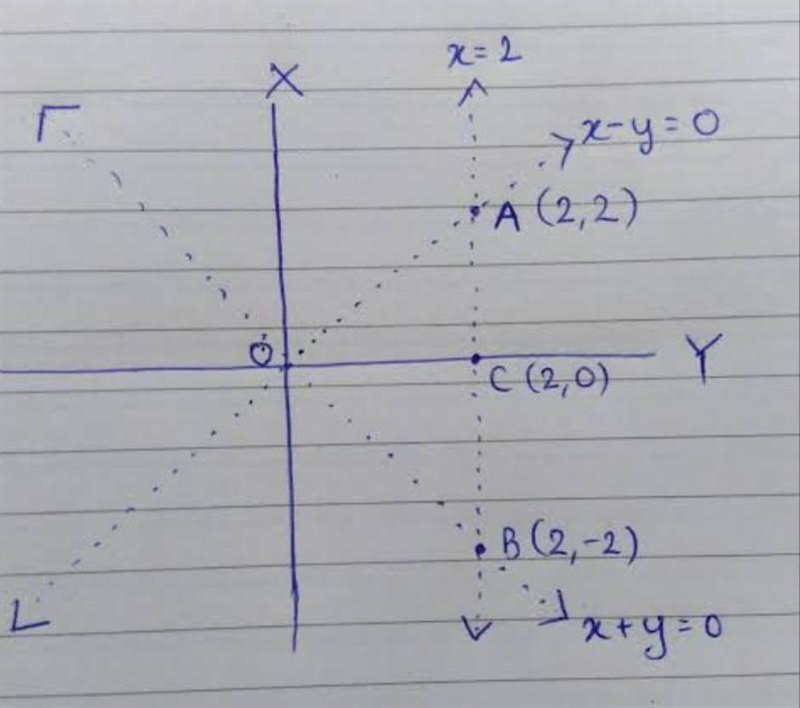 x=2
X
x-y=0
A (2,2)
O
Y
C (2,0)
B (2,-2)
x+y=0